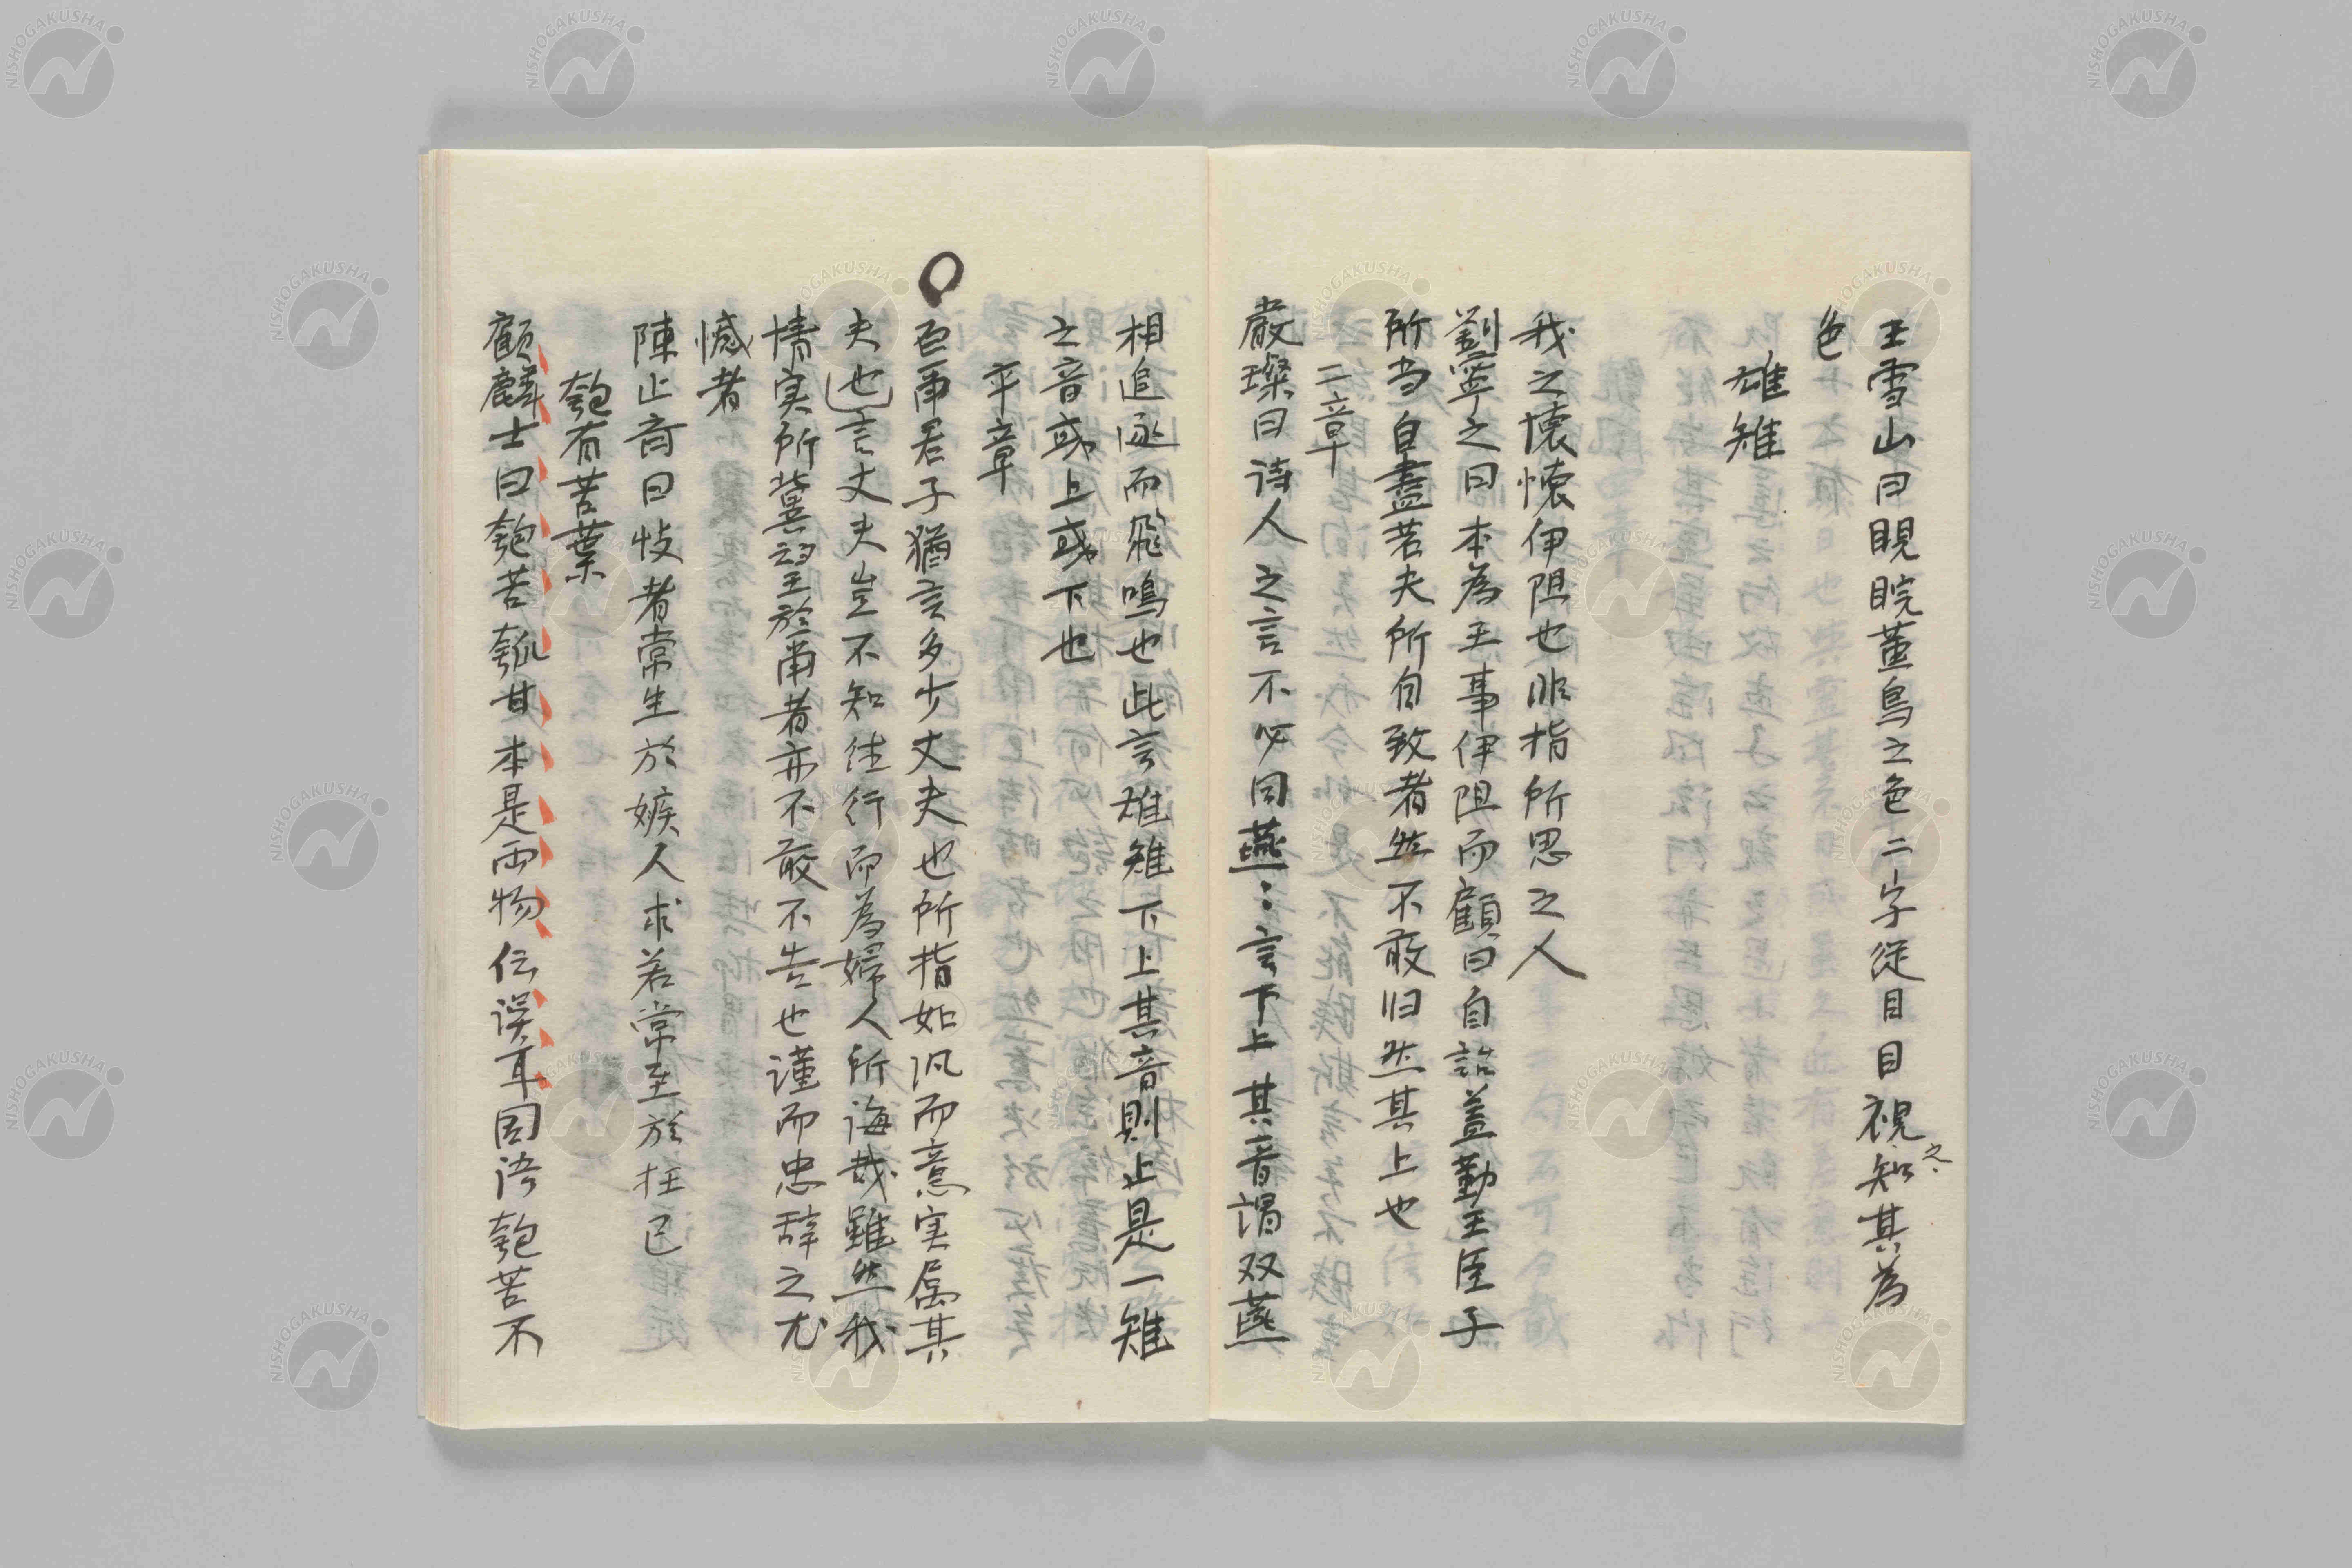 王雪山曰睍睆黃鳥之色二字從目目視之知其為
色
雄雉
我之懐懐伊阻也非指所思之人
劉寧之曰本為王事伊阻而顧曰自詒蓋勤王臣子
所当自盡若夫所自致者然不敢归然其上也
二章
嚴璨曰诗人之言不必同燕:言下上其音謂双燕
相追逐而飛鳴也此言雄雉下上其音則止是一雉
之音或上或下也
卒章
百爾君子猶言多少丈夫也所指如汎而意実属其
夫也言丈夫豈不知徃行而為婦人所诲哉雖然我
情実所冀望於爾者亦不敢不告也谨而忠辞之尤
憾者
陳止斎曰忮者常生於嫉人求者常至於枉己
匏有苦葉
顧麟士曰匏苦瓠甘本是両物伝误耳国语匏苦不
NISHOGAKUSHA